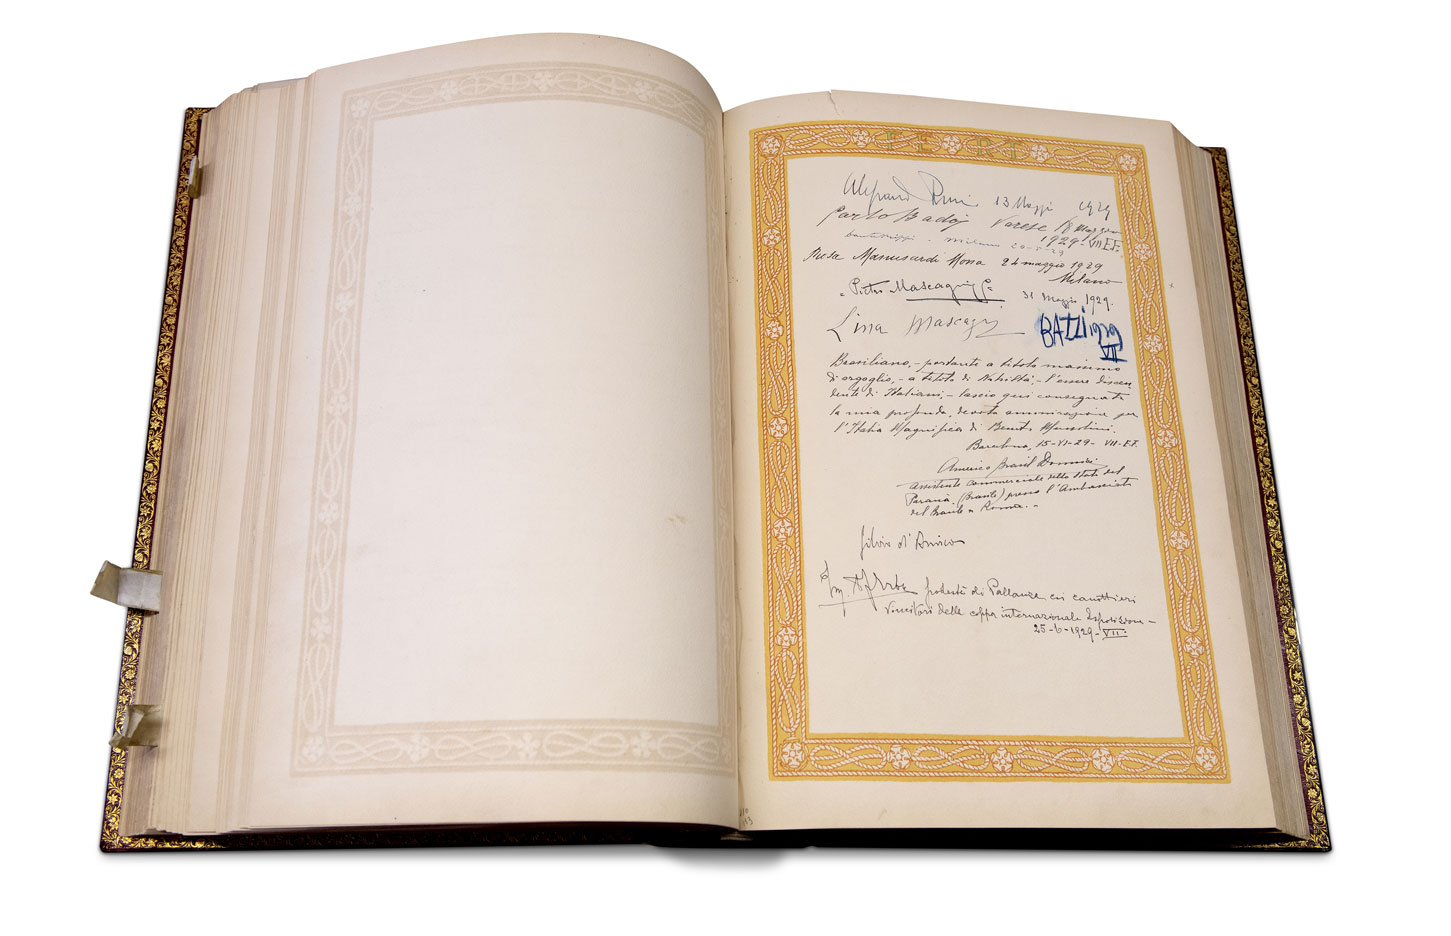 FERT
13 Maggio 1929
Carlo Badoj Varese 18 Maggio
1929-VII E.F.
Milano 20-5-29
Manusardi Mona 24 maggio 1929
Milano
"Pietro Mascagni"
31 Maggio 1929.
Lina Mascagni
BAZZI 1929
VII
Brasiliano, - portante a titolo massimo
di orgoglio, - a titolo di Nobiltà, - l'essere discen
denti di Italiani, - lascio qui consegnata
la mia profonda, devota ammirazione per
l'Italia Magnifica di Benito Mussolini.
Barcelona, 15-VI-29- VII-E.F.
Americo Brasil Donnini
assistente commerciale dello Stato del
Paranà (Brasile) presso l'Ambasciata
del Brasile a Roma. -
Silvio d'Amico
Ing. podestà di Pallanza coi canottieri
Vincitori della coppa internazionale Esposizione -
25-6-1929- VII.